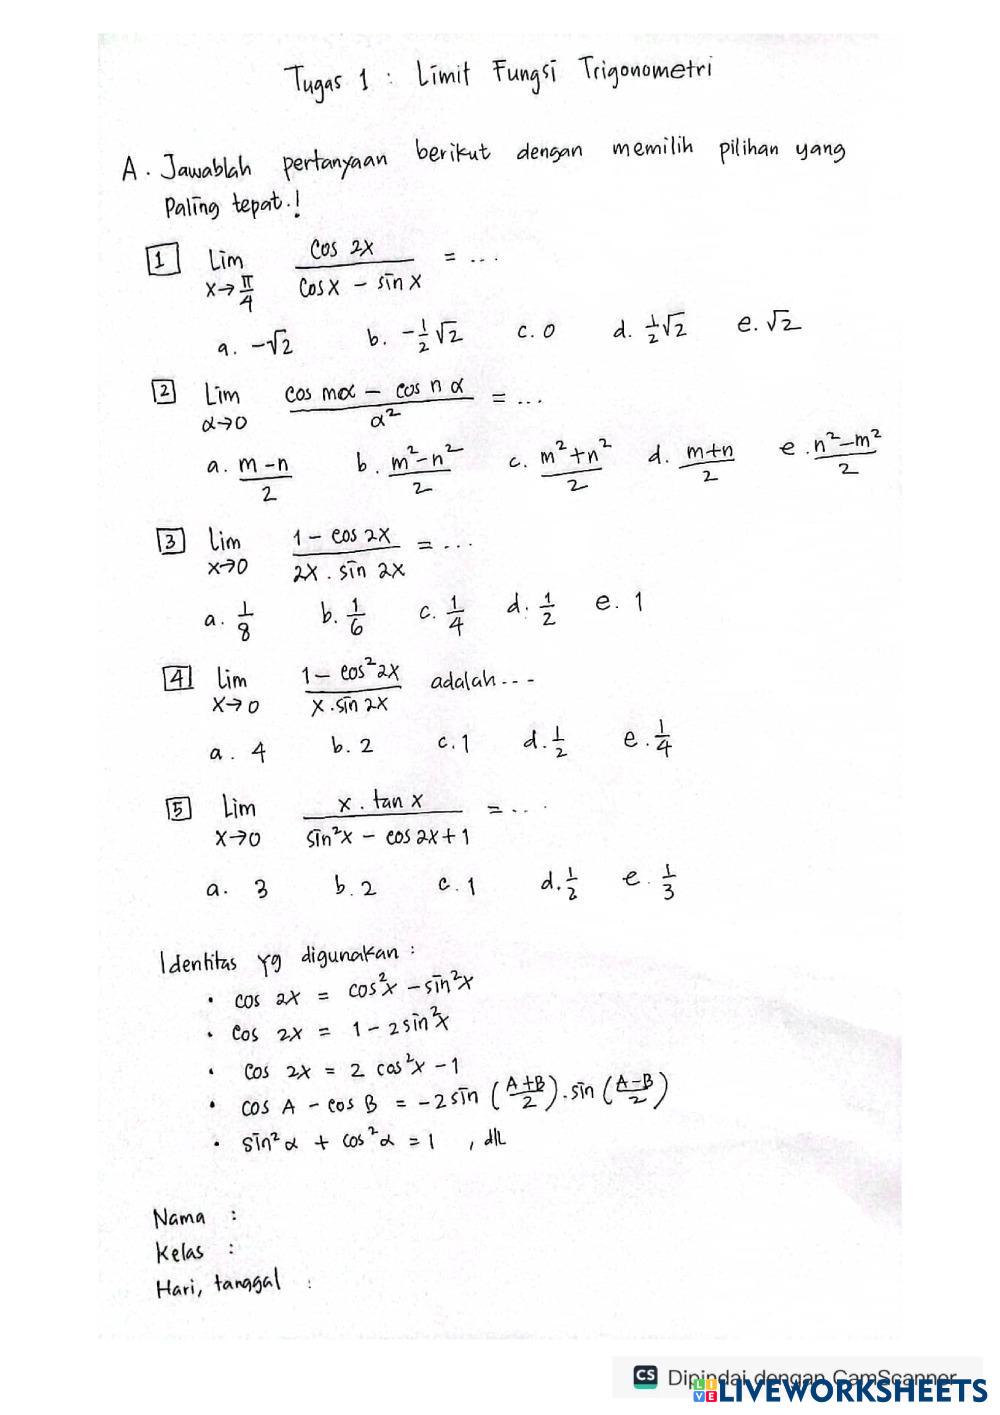 Tugas 1 : Limit Fungsi Trigonometri
A. Jawablah pertanyaan berikut dengan memilih pilihan yang
Paling tepat.!
1 Lim x→π/4 cos 2x / cos x - sin x = ...
a. -√2 b. -1/2 √2 c. 0 d. 1/2 √2 e. √2
2 Lim α→0 cos mα - cos n α / α² = ...
a. m-n/2 b. m²-n²/2 c. m²+n²/2 d. m+n/2 e. n²-m²/2
3 Lim x→0 1 - cos 2x / 2x . sin 2x = ...
a. 1/8 b. 1/6 c. 1/4 d. 1/2 e. 1
4 Lim x→0 1 - cos² 2x / x . sin 2x adalah ...
a. 4 b. 2 c. 1 d. 1/2 e. 1/4
5 Lim x→0 x . tan x / sin²x - cos 2x + 1 = ...
a. 3 b. 2 c. 1 d. 1/2 e. 1/3
Identitas yg digunakan :
• cos 2x = cos²x - sin²x
• cos 2x = 1 - 2 sin²x
• cos 2x = 2 cos²x - 1
• cos A - cos B = -2 sin (A+B/2) . sin (A-B/2)
• sin²α + cos²α = 1 , dll
Nama :
Kelas :
Hari, tanggal :
CS Dipindai dengan CamScanner
LIVE LIVEWORKSHEETS